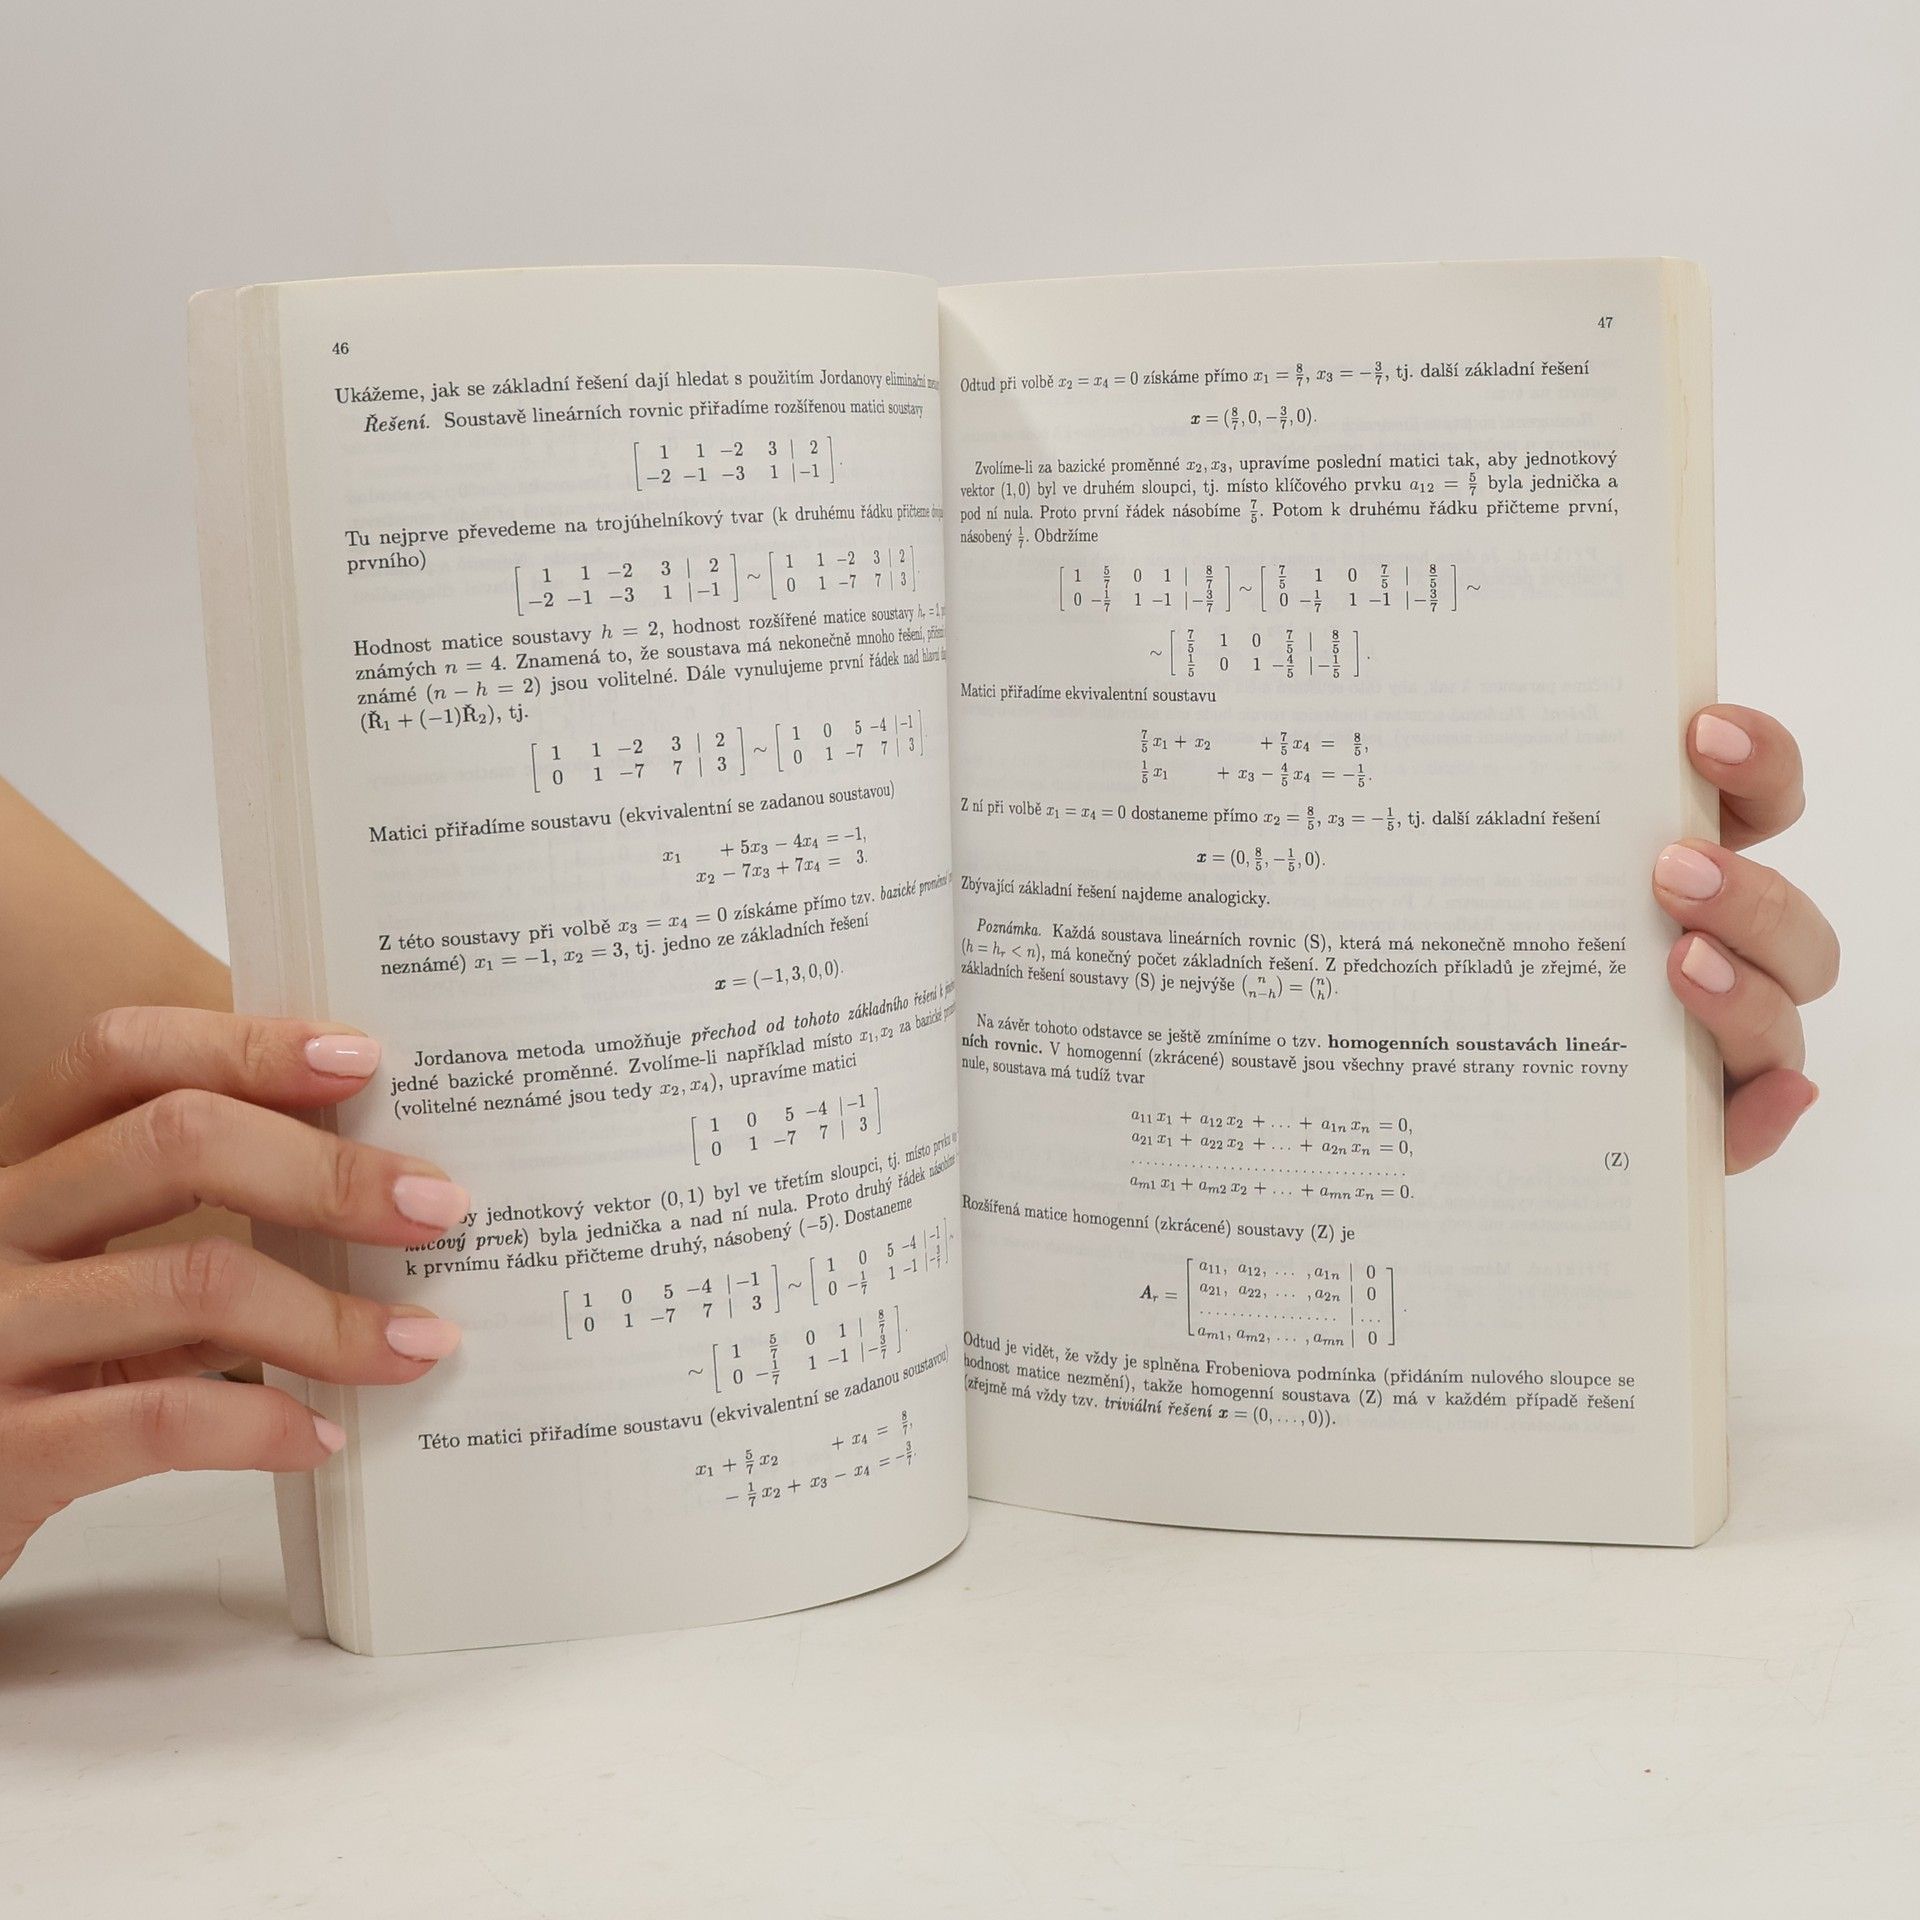 46
Ukážeme, jak se základní řešení dají hledat s použitím Jordanovy eliminační
Řešení. Soustavě lineárních rovnic přiřadíme rozšířenou matici soustavy
[ 1 1 −2 3 | 2 ]
[ −2 −1 −3 1 | −1 ] .
Tu nejprve převedeme na trojúhelníkový tvar (k druhému řádku přičteme
prvního)
[ 1 1 −2 3 | 2 ] ~ [ 1 1 −2 3 | 2 ]
[ −2 −1 −3 1 | −1 ] [ 0 1 −7 7 | 3 ] .
Hodnost matice soustavy h = 2, hodnost rozšířené matice soustavy
známých n = 4. Znamená to, že soustava má nekonečně mnoho řešení,
známé (n − h = 2) jsou volitelné. Dále vynulujeme první řádek nad hlavní
(Ř₁ + (−1)Ř₂), tj.
[ 1 1 −2 3 | 2 ] ~ [ 1 0 5 −4 | −1 ]
[ 0 1 −7 7 | 3 ] [ 0 1 −7 7 | 3 ] .
Matici přiřadíme soustavu (ekvivalentní se zadanou soustavou)
x₁ + 5x₃ − 4x₄ = −1,
x₂ − 7x₃ + 7x₄ = 3.
Z této soustavy při volbě x₃ = x₄ = 0 získáme přímo tzv. bazické proměnné
neznámé) x₁ = −1, x₂ = 3, tj. jedno ze základních řešení
x = (−1, 3, 0, 0).
Jordanova metoda umožňuje přechod od tohoto základního řešení k
jedné bazické proměnné. Zvolíme-li například místo x₁, x₂ za bazické
(volitelné neznámé jsou tedy x₂, x₄), upravíme matici
[ 1 0 5 −4 | −1 ]
[ 0 1 −7 7 | 3 ]
jednotkový vektor (0, 1) byl ve třetím sloupci, tj. místo prvku
prvek) byla jednička a nad ní nula. Proto druhý řádek násobíme
k prvnímu řádku přičteme druhý, násobený (−5). Dostaneme
[ 1 0 5 −4 | −1 ] ~ [ 1 0 5 −4 | −1 ]
[ 0 1 −7 7 | 3 ] [ 0 −1/7 1 −1 | −3/7 ]
~ [ 1 5/7 0 1 | 8/7 ]
[ 0 −1/7 1 −1 | −3/7 ] .
Této matici přiřadíme soustavu (ekvivalentní se zadanou soustavou)
x₁ + 5/7 x₂ + x₄ = 8/7,
− 1/7 x₂ + x₃ − x₄ = −3/7.
47
Odtud při volbě x₂ = x₄ = 0 získáme přímo x₁ = 8/7, x₃ = −3/7, tj. další základní řešení
x = (8/7, 0, −3/7, 0).
Zvolíme-li za bazické proměnné x₂, x₃, upravíme poslední matici tak, aby jednotkový
vektor (1,0) byl ve druhém sloupci, tj. místo klíčového prvku a₁₂ = 5/7 byla jednička a
pod ní nula. Proto první řádek násobíme 7/5. Potom k druhému řádku přičteme první,
násobený 1/7. Obdržíme
[ 1 5/7 0 1 | 8/7 ] ~ [ 7/5 1 0 7/5 | 8/5 ] ~
[ 0 −1/7 1 −1 | −3/7 ] [ 0 −1/7 1 −1 | −3/7 ]
~ [ 7/5 1 0 7/5 | 8/5 ]
[ 1/5 0 1 −4/5 | −1/5 ] .
Matici přiřadíme ekvivalentní soustavu
7/5 x₁ + x₂ + 7/5 x₄ = 8/5,
1/5 x₁ + x₃ − 4/5 x₄ = −1/5.
Z ní při volbě x₁ = x₄ = 0 dostaneme přímo x₂ = 8/5, x₃ = −1/5, tj. další základní řešení
x = (0, 8/5, −1/5, 0).
Zbývající základní řešení najdeme analogicky.
Poznámka. Každá soustava lineárních rovnic (S), která má nekonečně mnoho řešení
(h = hᵣ < n), má konečný počet základních řešení. Z předchozích příkladů je zřejmé, že
základních řešení soustavy (S) je nejvýše (n n−h) = (n h).
Na závěr tohoto odstavce se ještě zmíníme o tzv. homogenních soustavách lineár-
ních rovnic. V homogenní (zkrácené) soustavě jsou všechny pravé strany rovnic rovny
nule, soustava má tudíž tvar
a₁₁ x₁ + a₁₂ x₂ + … + a₁ₙ xₙ = 0,
a₂₁ x₁ + a₂₂ x₂ + … + a₂ₙ xₙ = 0,
.................................
(Z)
aₘ₁ x₁ + aₘ₂ x₂ + … + aₘₙ xₙ = 0.
Rozšířená matice homogenní (zkrácené) soustavy (Z) je
[ a₁₁, a₁₂, … , a₁ₙ | 0 ]
Aᵣ = [ a₂₁, a₂₂, … , a₂ₙ | 0 ] .
[ ................. | … ]
[ aₘ₁, aₘ₂, … , aₘₙ | 0 ]
Odtud je vidět, že vždy je splněna Frobeniova podmínka (přidáním nulového sloupce se
hodnost matice nezmění), takže homogenní soustava (Z) má v každém případě řešení
(zřejmě má vždy tzv. triviální řešení x = (0, …, 0)).